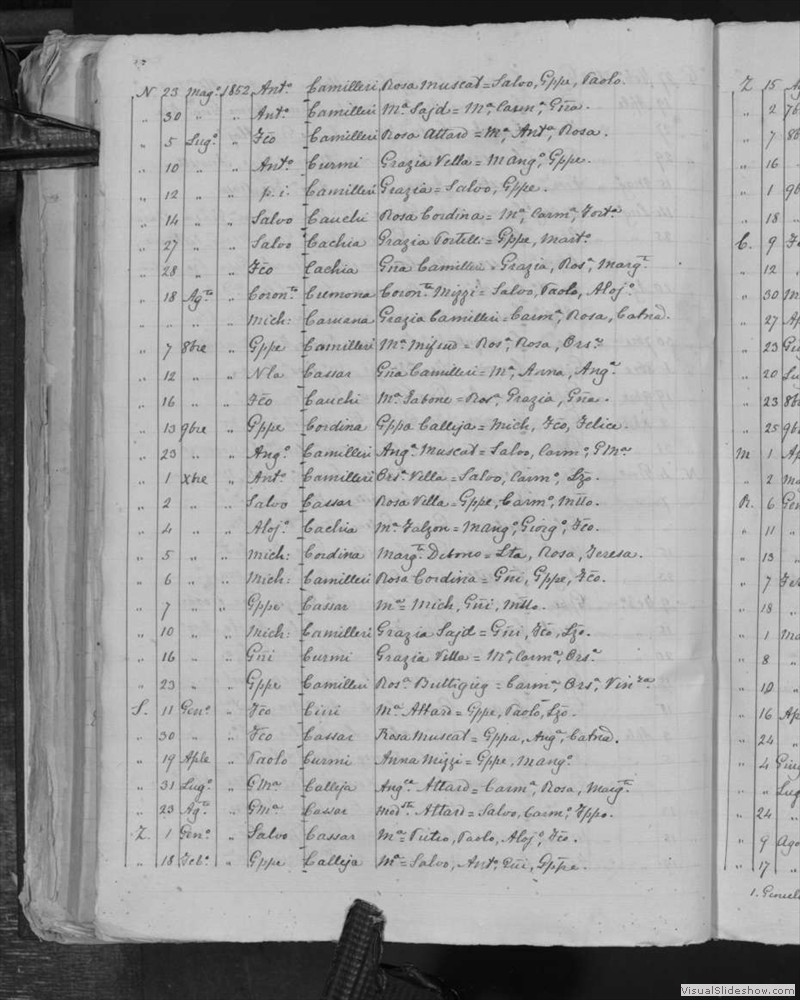 N 23 Mag.º 1852 Ant.º Camilleri Rosa Muscat = Salvo, Gppe, Paolo.
„ 30 „ „ Ant.º Camilleri M.ª Sajd = M.ª, Carm.ª, Gña.
„ 5 Lug.º „ Fco Camilleri Rosa Attard = M.ª, Ant.ª Rosa.
„ 10 „ „ Ant.º Curmi Grazia Vella = Mang.º, Gppe.
„ 12 „ „ p. i. Camilleri Grazia = Salvo, Gppe.
„ 14 „ „ Salvo Cauchi Rosa Cordina = M.ª, Carm.ª, Fort.ª
„ 27 „ „ Salvo Cachia Grazia Portelli = Gppe, Mart.º
„ 28 „ „ Fco Cachia Gña Camilleri = Grazia, Ros.ª, Marg.ta
„ 18 Ag.to „ Coron.to Cremona Coron.ta Mizzi = Salvo, Paolo, Aloj.º
„ „ „ Mich: Caruana Grazia Camilleri = Carm.ª, Rosa, Catnã.
„ 7 8bre „ Gppe Camilleri M.ª Mifsud = Ros.ª, Rosa, Ors.ª
„ 12 „ „ Nla Cassar Gña Camilleri = M.ª, Anna, Ang.ª
„ 16 „ „ Fco Cauchi M.ª Sabone = Ros.ª, Grazia, Gña.
„ 13 9bre „ Gppe Cordina Gppa Calleja = Mich, Fco, Felice.
„ 23 „ „ Ang.º Camilleri Ang.ª Muscat = Salvo, Carm.º, GM.ª
„ 1 xbre „ Ant.º Camilleri Ors.ª Vella = Salvo, Carm.º, Lzo.
„ 2 „ „ Salvo Cassar Rosa Vella = Gppe, Carm.º, Mtto.
„ 4 „ „ Aloj.º Cachia M.ª Falzon = Mang.º, Giorg.º, Fco.
„ 5 „ „ Mich: Cordina Marg.ta Debono = Lta, Rosa, Teresa.
„ 6 „ „ Mich: Camilleri Rosa Cordina = Gñi, Gppe, Fco.
„ 7 „ „ Gppe Cassar M.ª = Mich, Gñi, Mtto.
„ 10 „ „ Mich: Camilleri Grazia Sajd = Gñi, Fco, Lzo.
„ 16 „ „ Gñi Curmi Grazia Vella = M.ª, Carm.ª, Ors.ª
„ 23 „ „ Gppe Camilleri Ros.ª Buttigieg = Carm.ª, Ors.ª, Vin.za
S. 11 Gen.º „ Fco Cini M.ª Attard = Gppe, Paolo, Lzo.
„ 30 „ „ Fco Cassar Rosa Muscat = Gppa, Ang.ª, Catnã.
„ 19 Aple „ Paolo Curmi Anna Mizzi = Gppe, Mang.º
„ 31 Lug.º „ GM.ª Calleja Ang.ca Attard = Carm.ª, Rosa, Marg.ta
„ 23 Ag.to „ GM.ª Cassar Mod.sta Attard = Salvo, Carm.º, Fppo.
Z. 1 Gen.º „ Salvo Cassar M.ª = Pietro, Paolo, Aloj.º, Fco.
„ 18 Feb.º „ Gppe Calleja M.ª = Salvo, Ant.º, Gñi, Gppe.
Z 15
„ 2 7b
„ 7 8b
„ 16 „
„ 1 9b
„ 18 „
C. 9 Fe
„ 12 „
„ 30 M
„ 27 Ap
„ 23 Gi
„ 20 Lu
„ 23 8b
„ 25 9b
M 1 Ap
„ 2 Ma
R. 6 Gen
„ 11 „
„ 13 „
„ 7 Feb
„ 18 „
„ 1 Ma
„ 8 „
„ 10 „
„ 16 Ap
„ 24 „
„ 4 Giug
„ „ Lug
„ 24 „
„ 9 Ago
„ 17 „
VisualSlideshow.com